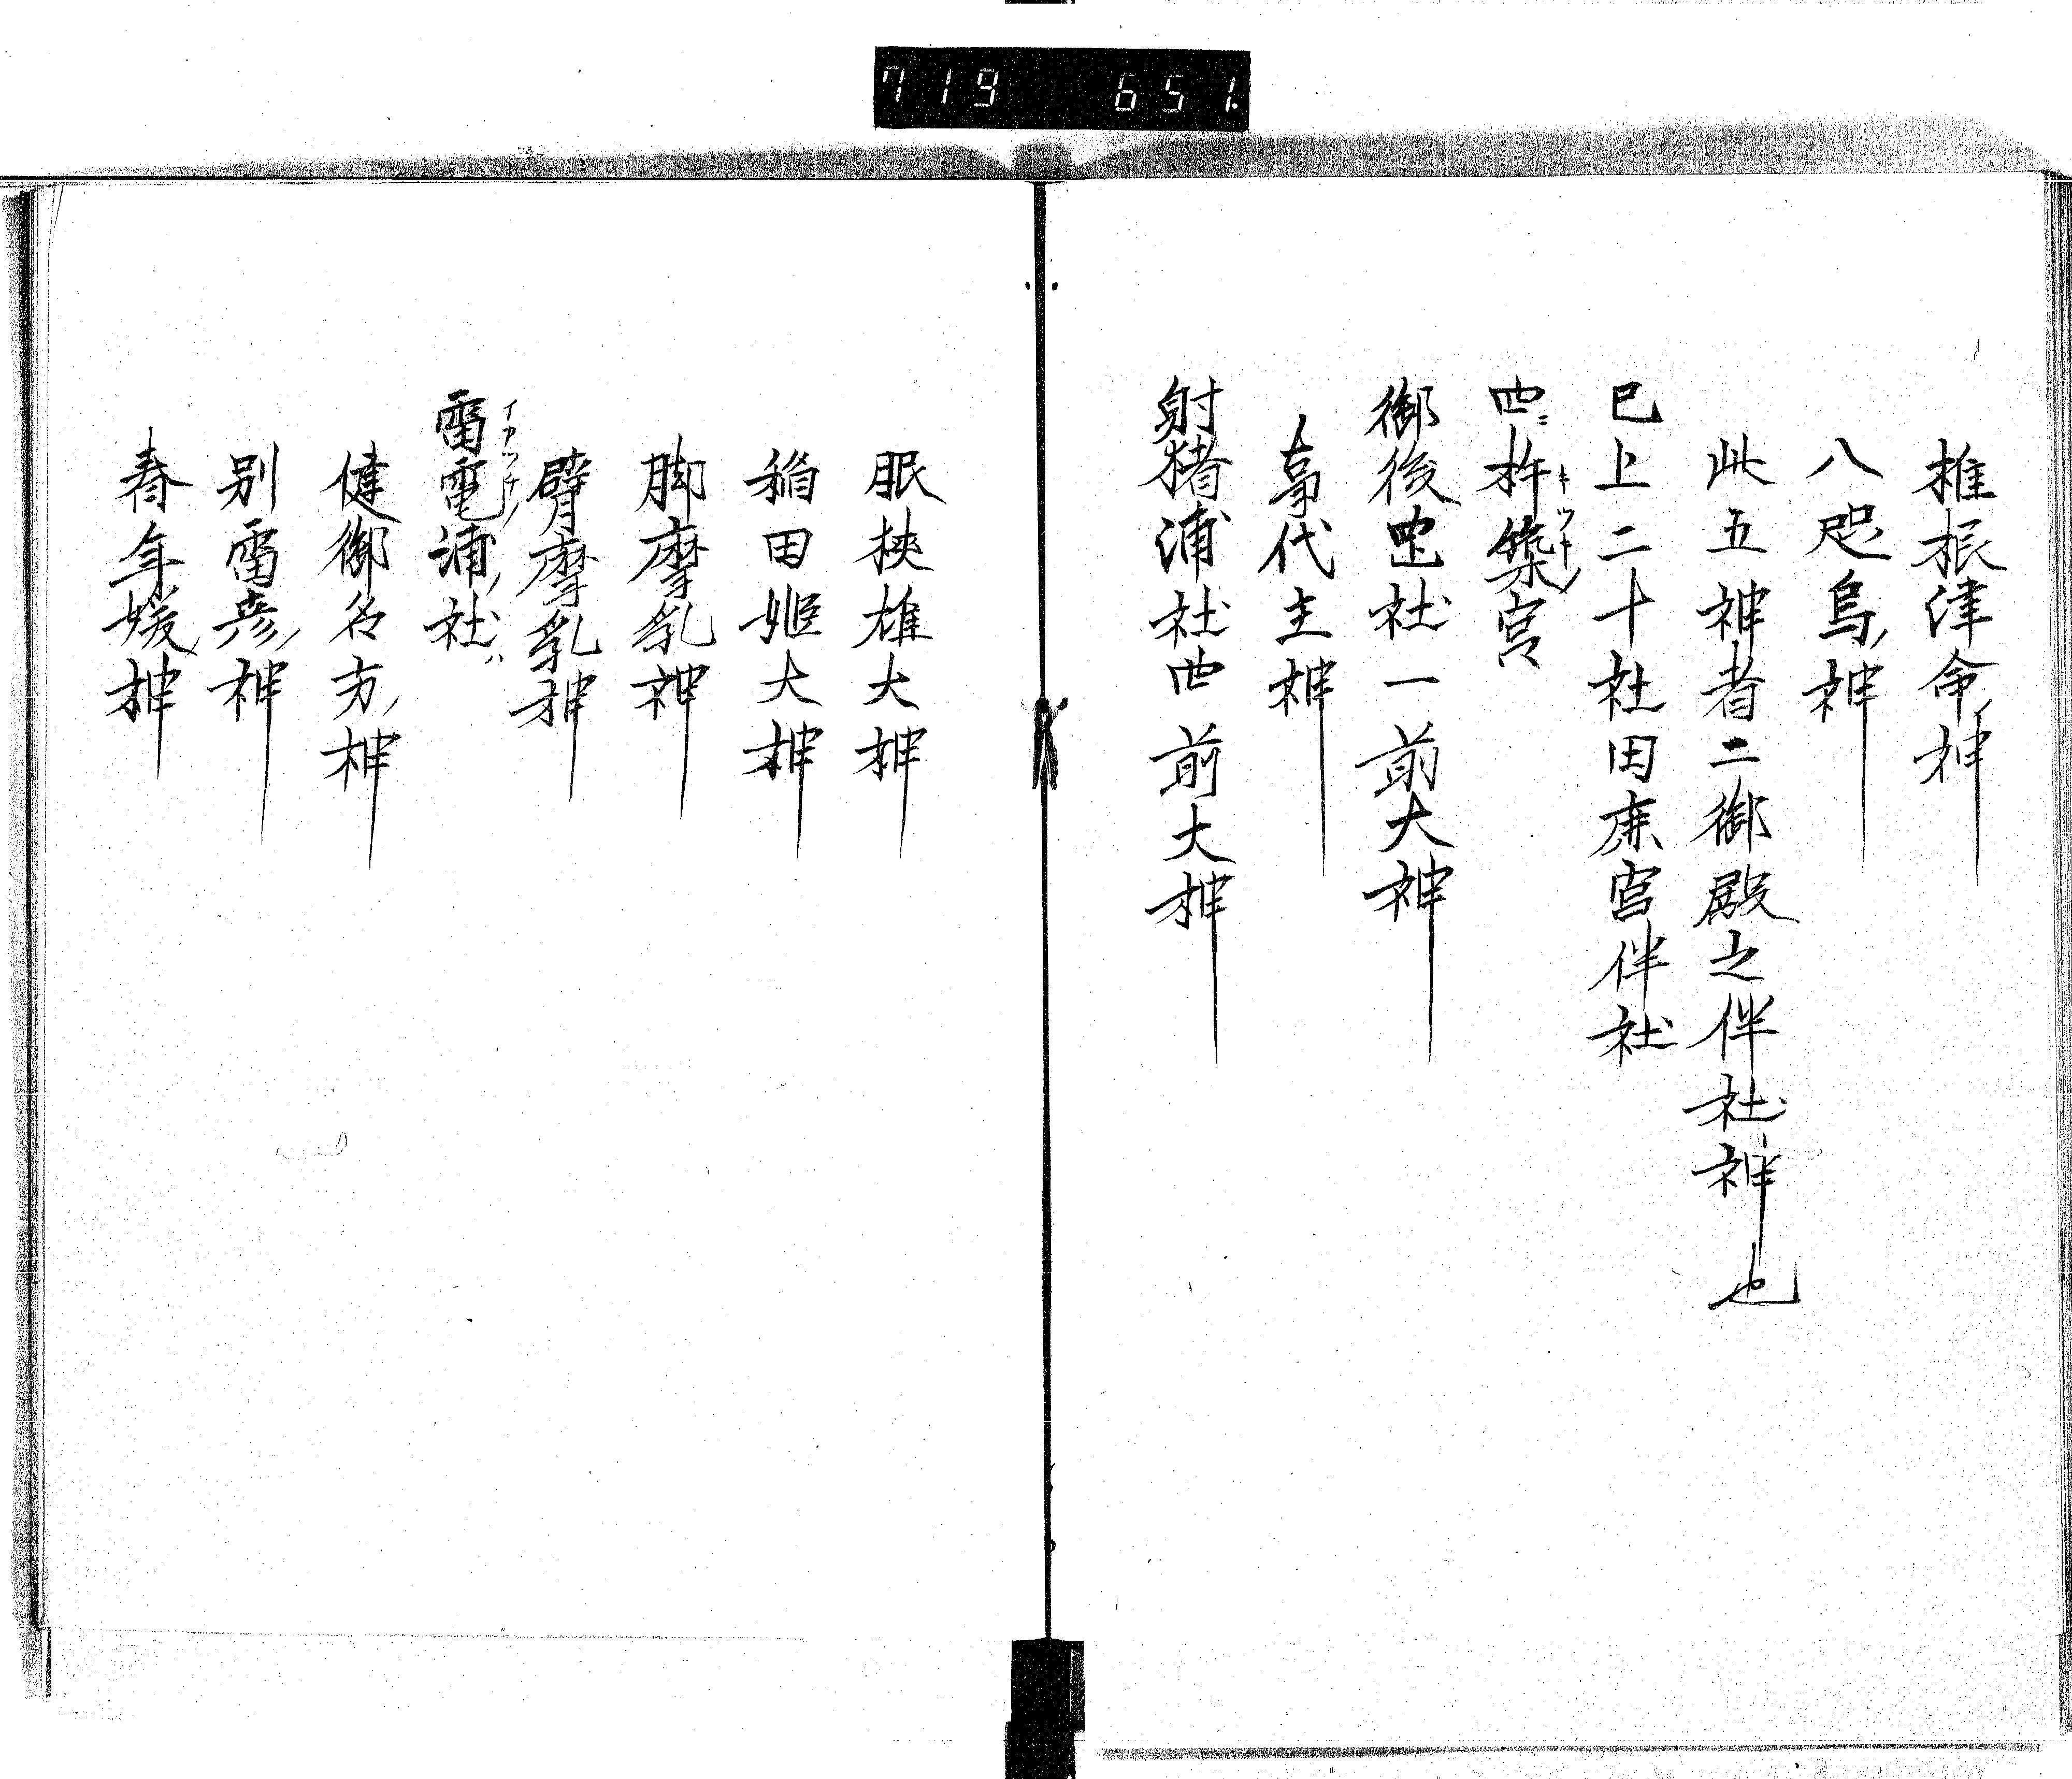 719 651.
椎根津命ノ神
八咫烏ノ神
此五神者二御殿之伴社神也
已上二十社田庶宮伴社
四ニ杵築宮
御後社一前大神
事代主神
射楯浦社四前大神
眼挾雄大神
稲田姫大神
脚摩乳神
臂摩乳神
雷電ノ浦ノ社ハ
健御名方ノ神
別雷彦ノ神
春年媛神